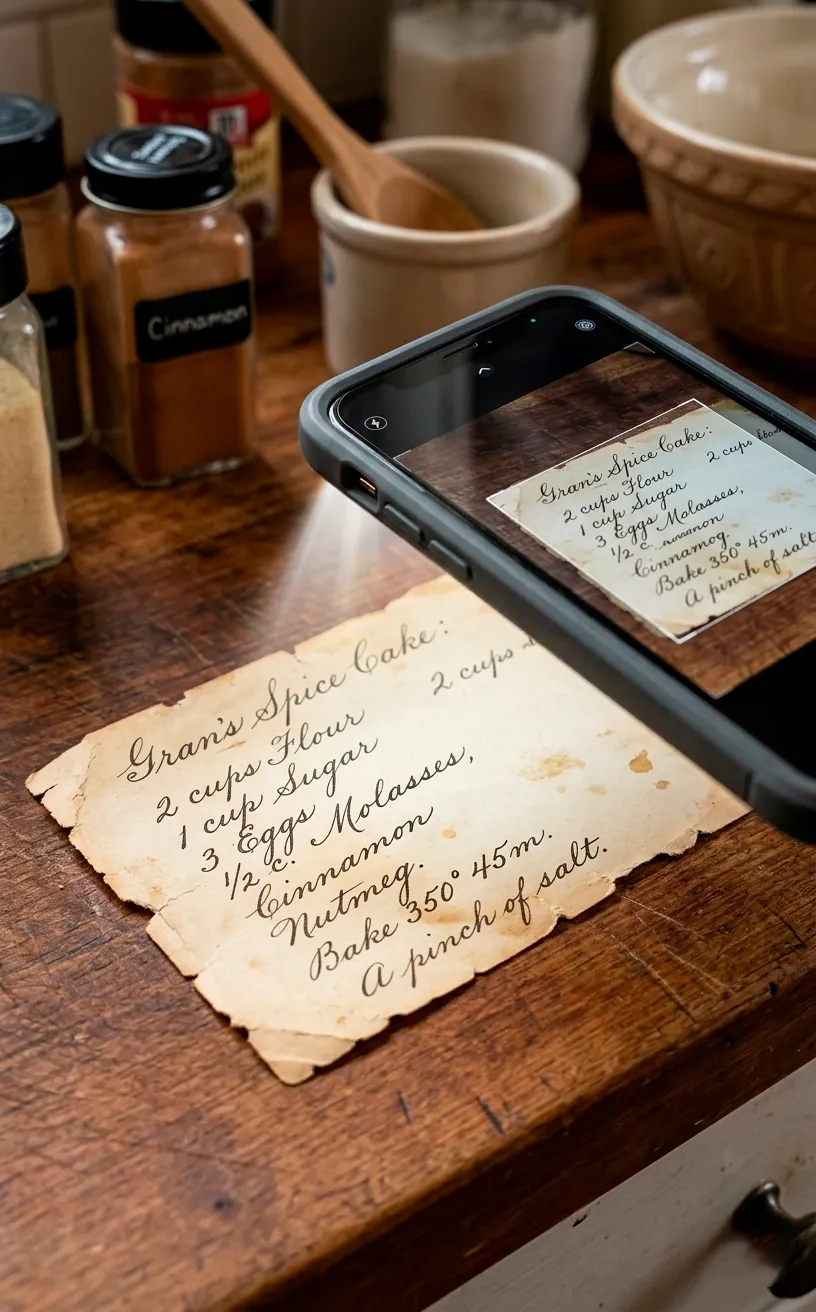 Cinnamon
Gran's Spice Cake:
2 cups Flour
2 cups
1 cup Sugar
3 Eggs
1/2 c. Molasses,
Cinnamon
Nutmeg.
Bake 350° 45m.
A pinch of salt.
Gran's Spice Cake:
2 cups Flour
2 cups
1 cup Sugar
3 Eggs Molasses,
1/2 c.
Cinnamog.
Bake 350° 45m.
A pinch of salt